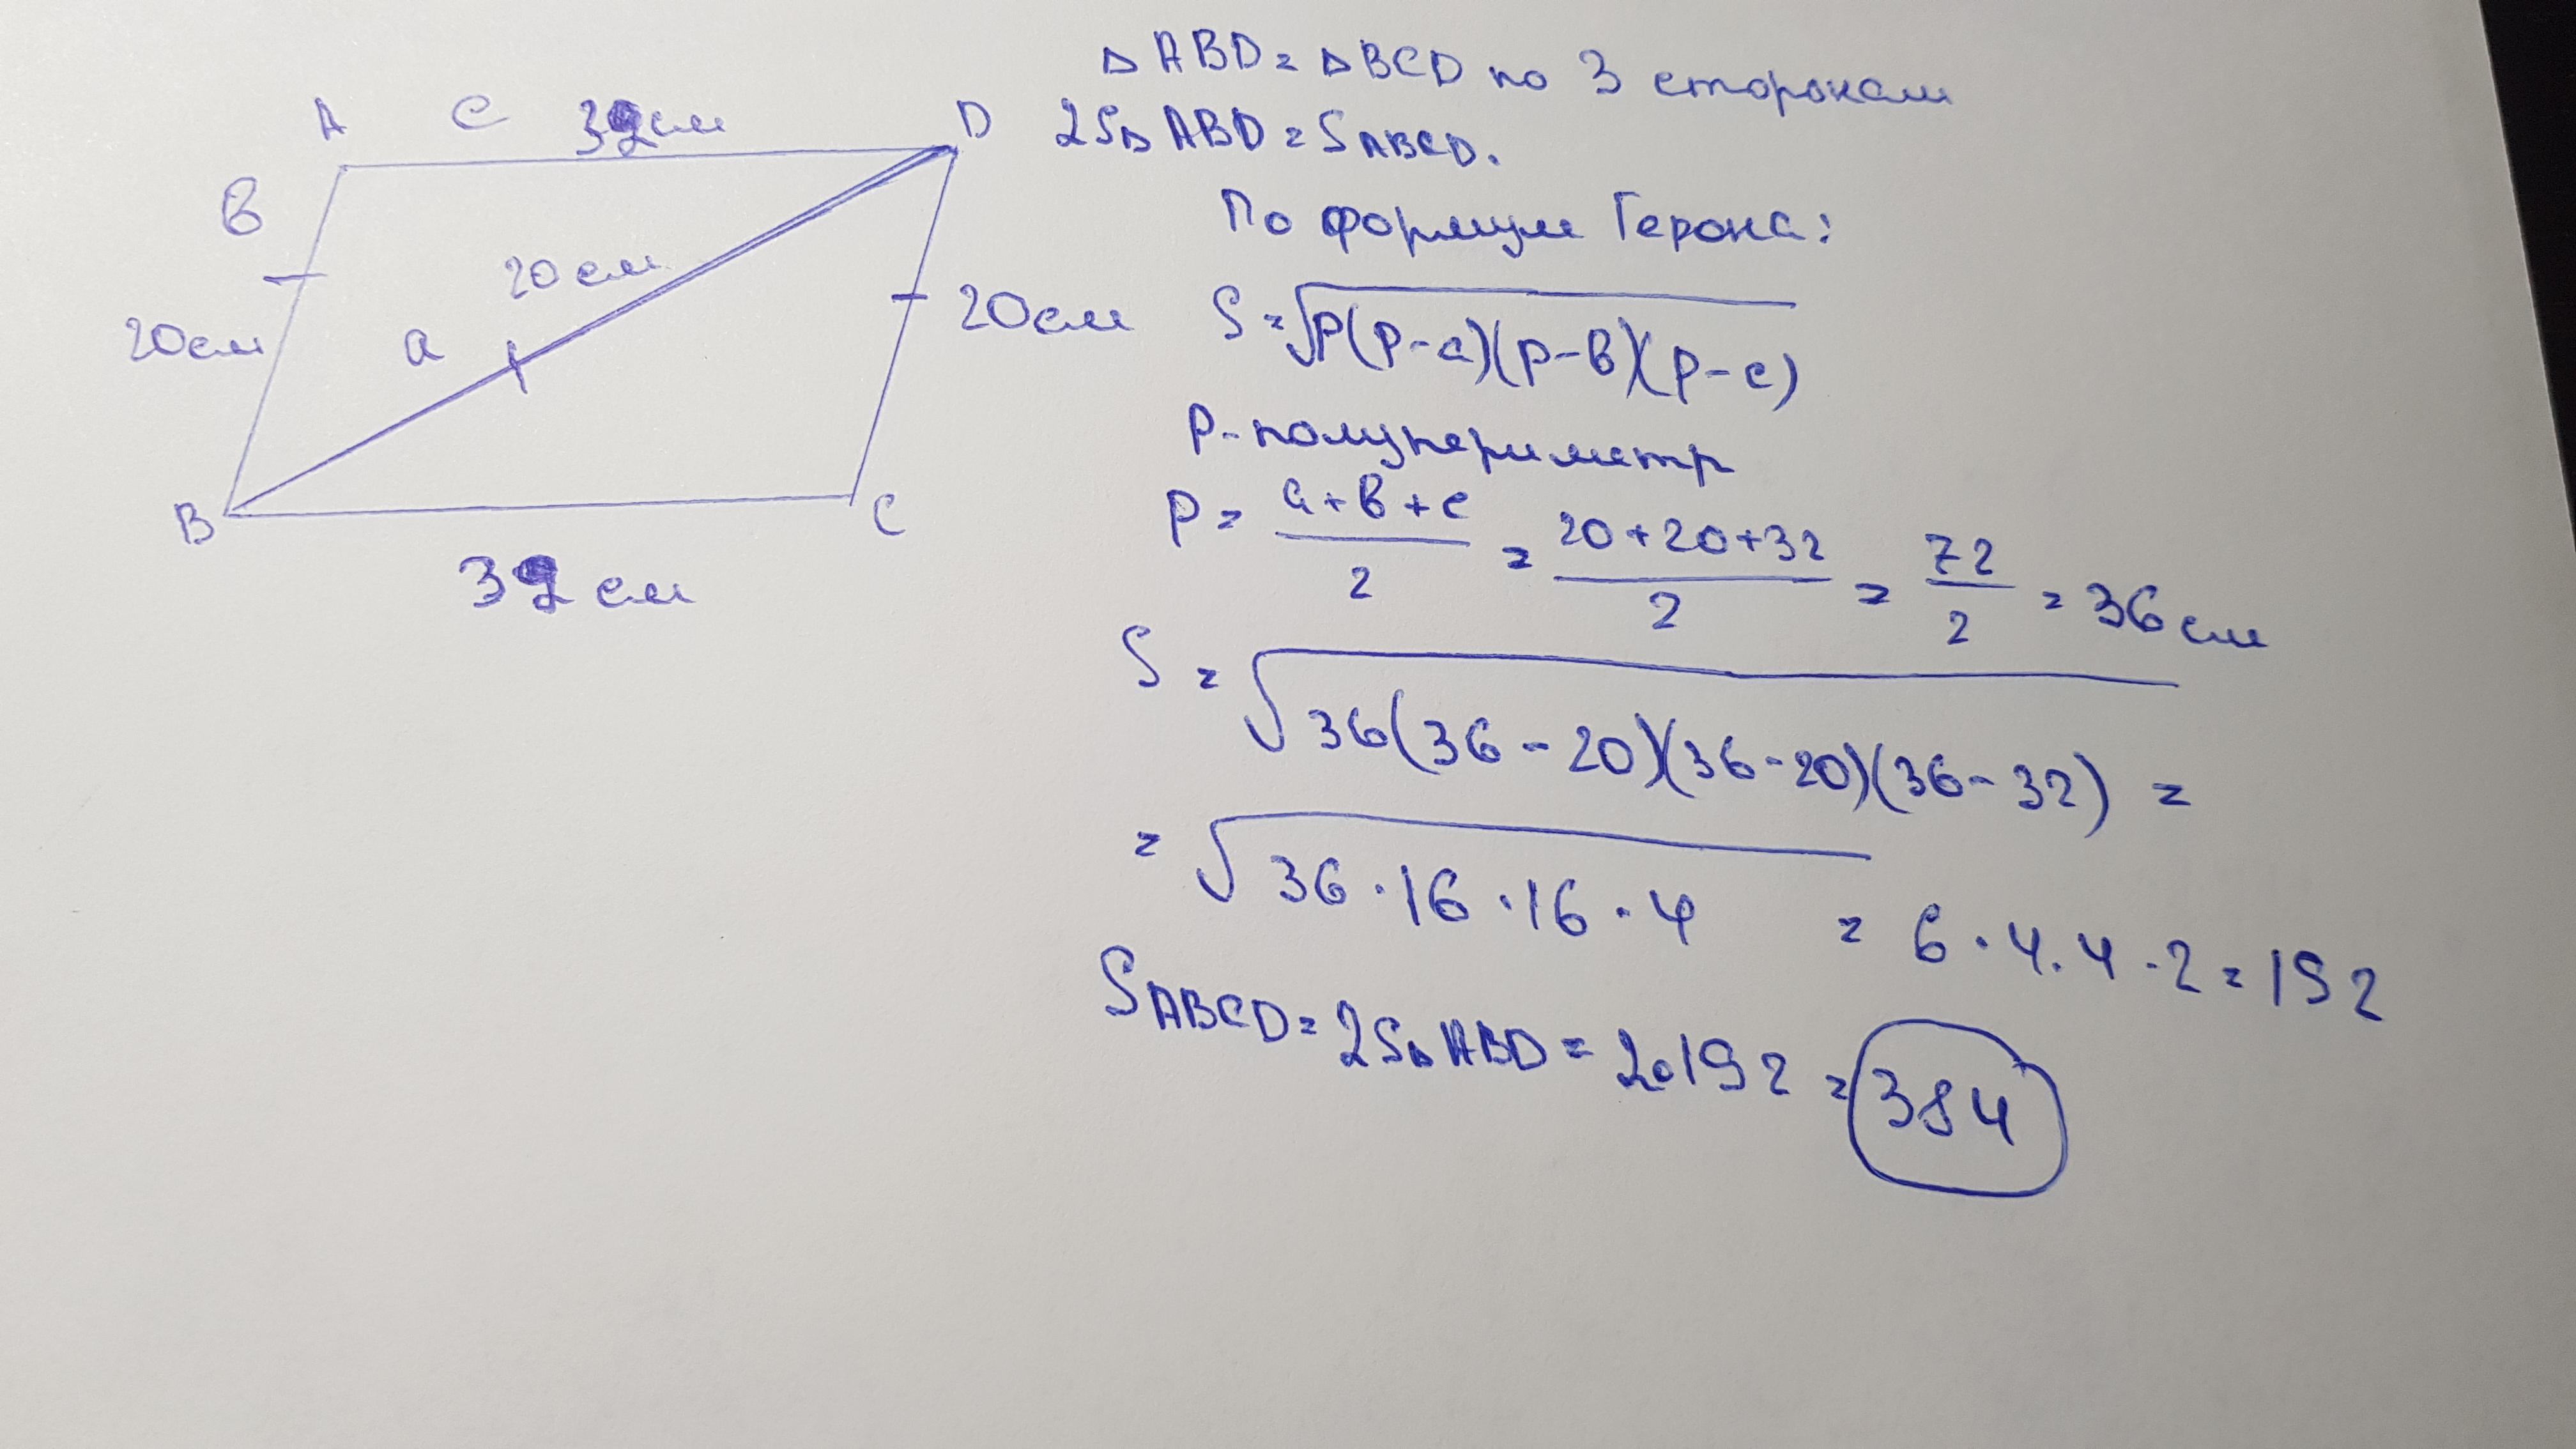 A с 32см D
В
20см
20см
а
20см
B C
32см
△ABD = △BCD по 3 сторонам
2S△ABD = SABCD.
По формуле Герона:
S = √p(p-a)(p-в)(p-c)
P-полупериметр
P = a+в+c / 2 = 20+20+32 / 2 = 72 / 2 = 36см
S = √36(36-20)(36-20)(36-32) =
= √36·16·16·4 = 6·4·4·2 = 192
SABCD = 2S△ABD = 2·192 = 384